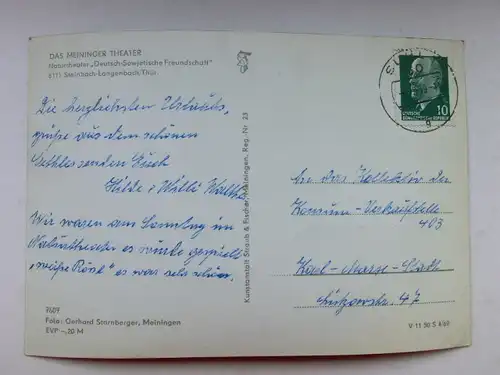 DAS MEININGER THEATER
Naturtheater „Deutsch-Sowjetische Freundschaft"
6111 Steinbach-Langenbach/Thür.
Die herzlichsten Urlaubs,
grüße aus dem schönen
senden Euch
Hilde + Willi Walther
Wir waren am Sonntag im
Naturtheater es wurde gespielt
„weiße Rössl" es war sehr schön.
7609
Foto: Gerhard Sternberger, Meiningen
EVP –,20 M
Kunstanstalt Straub & Fischer, Meiningen, Reg.-Nr. 23
10
DEUTSCHE
DEMOKRATISCHE REPUBLIK
An das Kollektiv der
Konsum-Verkaufsstelle
403
Karl-Marx-Stadt
Lützowstr. 47
V 11 50 S 6/69